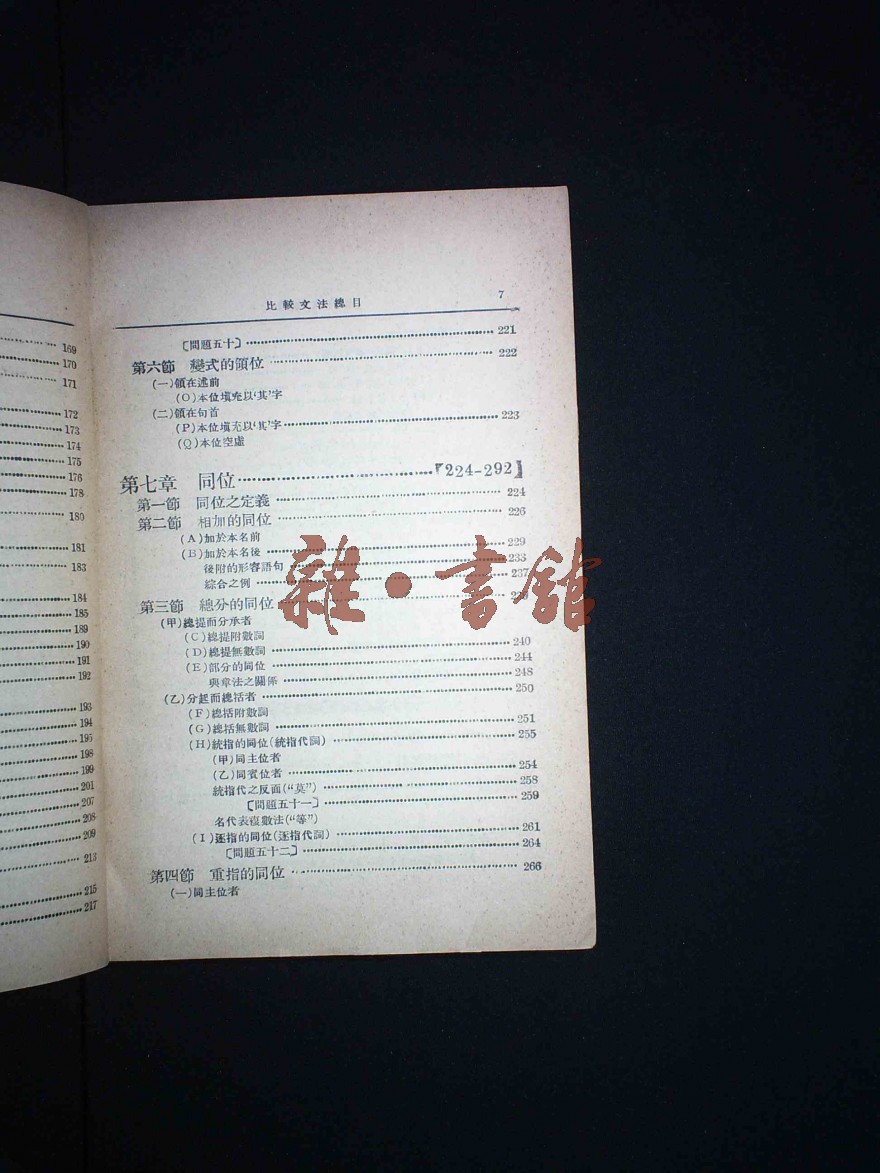 169
170
171
172
173
174
175
176
178
180
181
183
184
185
189
190
191
192
193
194
195
198
199
201
207
208
209
213
215
217
比較文法總目 7
〔問題五十〕 221
第六節 變式的領位 222
(一)領在述前
(O)本位填充以‘其’字
(二)領在句首
(P)本位填充以‘其’字 223
(Q)本位空虛
第七章 同位 『224-292】
第一節 同位之定義 224
第二節 相加的同位 226
(A)加於本名前
(B)加於本名後 229
後附的形容語句 233
綜合之例 237
第三節 總分的同位
(甲)總提而分承者
(C)總提附數詞
(D)總提無數詞 240
(E)部分的同位 244
與章法之關係 248
(乙)分起而總括者 250
(F)總括附數詞
(G)總括無數詞 251
(H)統指的同位(統指代詞) 255
(甲)同主位者
(乙)同賓位者 254
統指代之反面(“莫”) 258
〔問題五十一〕 259
名代表複數法(“等”)
(I)逐指的同位(逐指代詞) 261
〔問題五十二〕 264
第四節 重指的同位 266
(一)同主位者
雜·書館